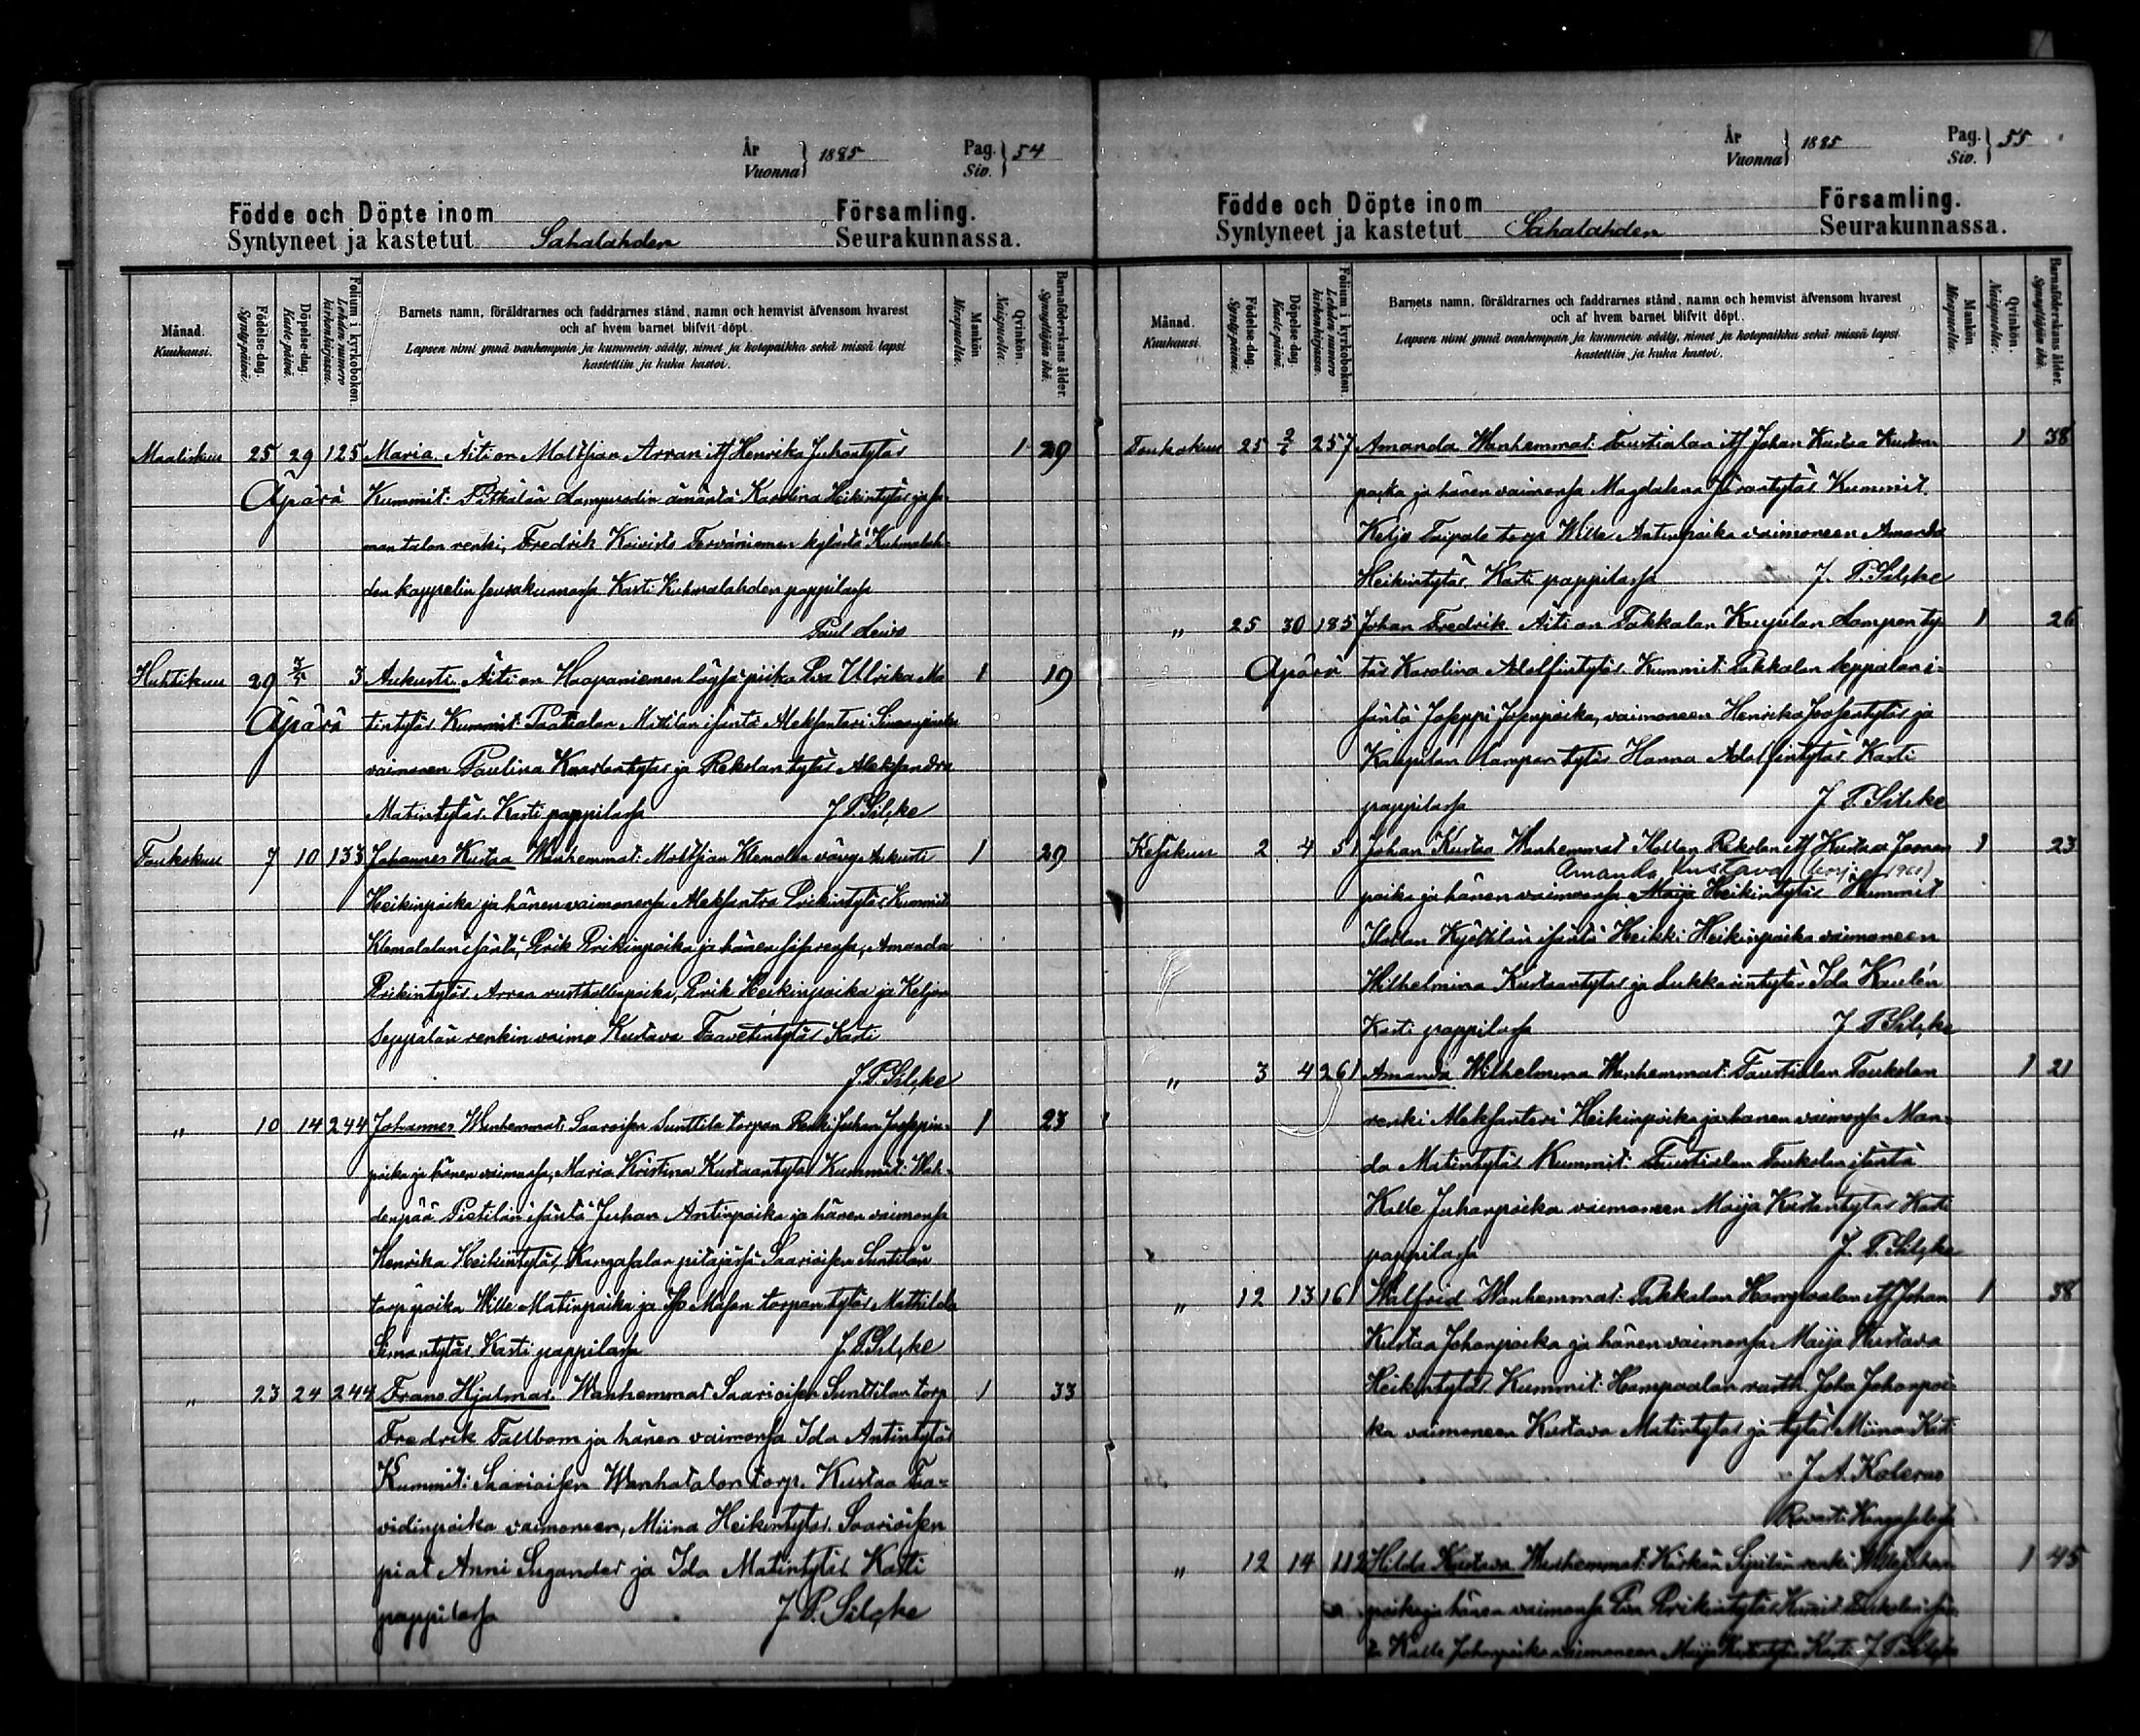 År
Vuonna } 1885 Pag.
Siv. } 54
Födde och Döpte inom Församling.
Syntyneet ja kastetut Sahalahden Seurakunnassa.
Månad.
Kuukausi.
Födelse-dag.
Synty-päivä.
Döpelse-dag.
Kaste-päivä.
Folium i kyrkoboken.
Lehden numero kirkonkirjassa.
Barnets namn, föräldrarnes och faddrarnes stånd, namn och hemvist äfvensom hvarest
och af hvem barnet blifvit döpt.
Lapsen nimi ynnä vanhempain ja kummein sääty, nimet ja kotopaikka sekä missä lapsi
kastettiin ja kuka kastoi.
Mankön
Miespuolta.
Qvinkön.
Naispuolta.
Barnaföderskans ålder.
Synnyttäjän ikä.
Maaliskuu 25 29 125 Maria Äiti on Moltsian Arran itf Henrika Juhontytär 1 29
Äpärä Kummit: Pitkälän Lampuodin emäntä Karolina Heikintytär ja sa
man talon renki, Fredrik Koivisto Tervaniemen kylästä Kuhmalah-
den kappelin seurakunnassa Kasti Kuhmalahden pappilassa
Paul Leivo
Huhtikuu 29 3/5 3 Aukusti Äiti on Haapaniemen piika Eva Ulrika Ma 1 19
Äpärä tintytär Kummit: Mattilan isäntä Aleksanteri Simonpoika
vaimoneen Paulina Kustaantytär ja Rekolan tytär Aleksandra
Matintytär. Kasti pappilassa J. P. Silçke
Toukokuu 7 10 133 Johannes Kustaa Wanhemmat: Moltsian Klemolan vävy Aukusti 1 29
Heikinpoika ja hänen vaimonsa Aleksantra Erikintytär, Kummit
Klemolalan isäntä, Erik Erikinpoika ja hänen sisarensa, Amanda
Erikintytär Arran rusthollinpoika, Erik Heikinpoika ja Keljon
Seppälän renkin vaimo Kustava Taavetintytär Kasti
J. P. Silçke
" 10 14 244 Johannes Wanhemmat: Saarioisen Sunttila torpan Renki Juhan Joseppin- 1 23
poika ja hänen vaimonsa, Maria Kristina Kustaantytär Kummit: Wah-
denpää Pietilän isäntä Juhan Antinpoika ja hänen vaimonsa
Henrika Heikintytär, Kangasalan pitäjässä Saarioisen Suntilän
torp poika Wille Matinpoika ja torpan tytär Mathilda
Simontytär. Kasti pappilassa J. P. Silçke
" 23 24 244 Frans Hjalmar. Wanhemmat Saarioisen Sunttilan torp 1 33
Fredrik Fallbom ja hänen vaimonsa Ida Antintytär
Kummit: Saarioisen Wanhatalon torp. Kustaa Taa-
vidinpoika vaimoneen, Miina Heikintytär. Saarioisen
piiat Anni Sugander ja Ida Matintytär. Kasti
pappilassa J. P. Silçke
År
Vuonna } 1885 Pag.
Siv. } 55
Födde och Döpte inom Församling.
Syntyneet ja kastetut Sahalahden Seurakunnassa.
Månad.
Kuukausi.
Födelse-dag.
Synty-päivä.
Döpelse dag.
Kaste-päivä.
Folium i kyrkoboken.
Lehden numero kirkonkirjassa.
Barnets namn, föräldrarnes och faddrarnes stånd, namn och hemvist äfvensom hvarest
och af hvem barnet blifvit döpt.
Lapsen nimi ynnä vanhempain ja kummein sääty, nimet ja kotopaikka sekä missä lapsi
kastettiin ja kuka kastoi.
Mankön
Miespuolta.
Qvinkön.
Naispuolta.
Barnaföderskans ålder.
Synnyttäjän ikä.
Toukokuu 25 2/6 257 Amanda Wanhemmat: Taustialan itf Johan Kustaa Kustaan 1 38
poika ja hänen vaimonsa Magdalena Kummit.
Keljo Taipale torp Wille Antinpoika vaimoneen Amanda
Heikintytär. Kasti pappilassa J. P. Silçke
" 25 30 185 Johan Fredrik Äiti on Pakkalan Kaupilan Lampon ty 1 26
Äpärä tär Karolina Adolfintytär. Kummit: Pakkalan Seppälän i-
säntä Joseppi Josepinpoika, vaimoneen Henrika Joosentytär ja
Kaupilan Lampon tytär Hanna Adolfintytär Kasti
pappilassa J. P. Silçke
Kesäkuu 2 4 51 Johan Kustaa Wanhemmat Isollan Rekolan itf Kustaa Joonan 1 23
Amanda Kustava (korj. 1960)
poika ja hänen vaimonsa Maija Heikintytär Kummit
Kyöttilän isäntä Heikki Heikinpoika vaimoneen
Wilhelmina Kustaantytär ja Lukkarintytär Ida Kaulén
Kasti pappilassa J. P. Silçke
" 3 4 261 Amanda Wilhelmina Wanhemmat: Taustialan Toukolan 1 21
renki Aleksanteri Heikinpoika ja hänen vaimonsa Man-
da Matintytär Kummit: Taustialan Toukolan isäntä
Kalle Juhanpoika vaimoneen Maija Kustantytär Kasti
pappilassa J. P. Silçke
" 12 13 161 Walfrid Wanhemmat: Pakkalan Hampaalan itf Johan 1 38
Kustaa Johanpoika ja hänen vaimonsa Maija Kustava
Heikintytär. Kummit: Hampaalan rusth. Joha Johanpoi-
ka vaimoneen Kustava Matintytär ja tytär Miina Kasti
J. A. Kolerus
Rovasti Kangasalalla
" 12 14 112 Hilda Kustava Wanhemmat: Sipilän renki Wille Johan 1 45
poika ja hänen vaimonsa Eva Erikintytär Kummit. Toukolan isän
tä Kalle Johanpoika vaimoneen Maija Kustantytär Kasti J. P. Silçke